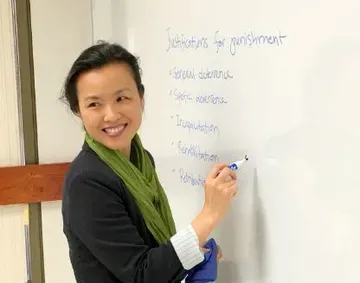 Justifications for punishment
• General deterrence
• Specific deterrence
• Incapacitation
• Rehabilitation
• Retribution